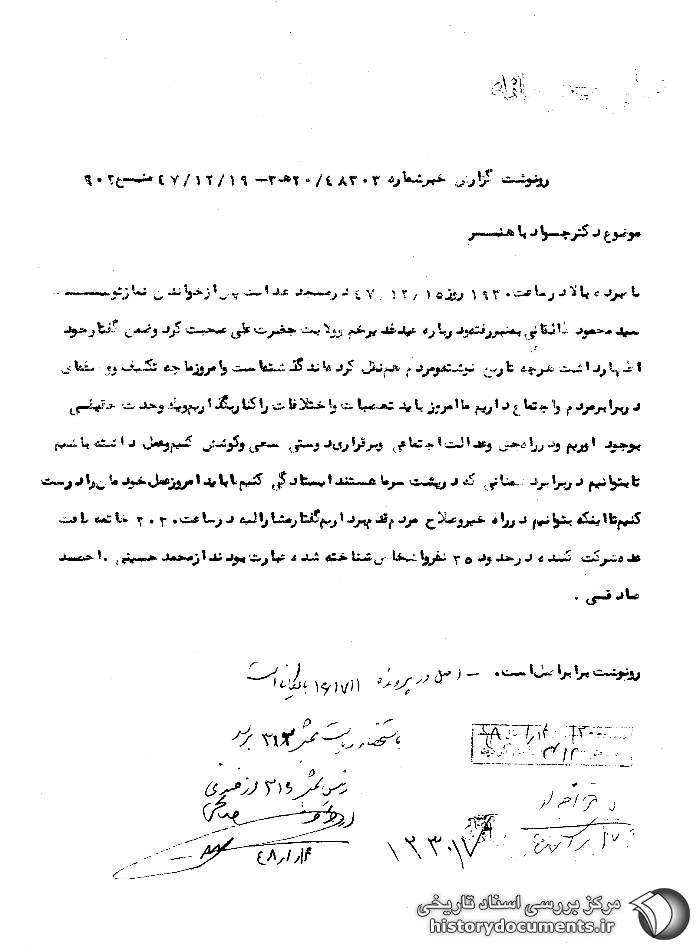 رونوشت گزارش خبر شماره ۲۰/۴۸۳۰۳ﻫ۳ – ۴۷/۱۲/۱۹ منبع ۹۰۲
موضوع دکتر جواد باهنر
نامبرده بالا در ساعت ۱۹۳۰ روز ۴۷/۱۲/۱۵ در مسجد هدایت پس از خواندن نماز توسط
سید محمود طالقانی بمنبر رفته و درباره عید غدیرخم و ولایت حضرت علی صحبت کرد و ضمن گفتار خود
اظهار داشت هرچه تاریخ نوشته و مردم هم نقل کرده‌اند گذشته است و امروز ما چه تکلیف و وظیفه‌ای
در برابر مردم و اجتماع داریم ما امروز باید تعصبات و اختلافات را کنار بگذاریم و یک وحدت حقیقی
بوجود آوریم و در راه حق و عدالت اجتماعی و برقراری دوستی سعی و کوشش کنیم و عمل داشته باشیم
تا بتوانیم در برابر دشمنانی که در پشت سر ما هستند ایستادگی کنیم ما باید امروز عمل خودمان را درست
کنیم تا اینکه بتوانیم در راه خیر و صلاح مردم قدم برداریم گفتار مشارالیه در ساعت ۲۰۲۰ خاتمه یافت
عده شرکت کننده در حدود ۳۵ نفر و اشخاص شناخته شده عبارت بودند از محمد حسینی . احمد
صادقی .
رونوشت برابر اصل است. – اصل در پرونده ۱۶۱۷۱۱ بایگانی است
باستحضار ریاست بخش ۳۱۲ برسد
رئیس بخش ۳۱۶
۱۲۳۰۱۷
مرکز بررسی اسناد تاریخی
historydocuments.ir